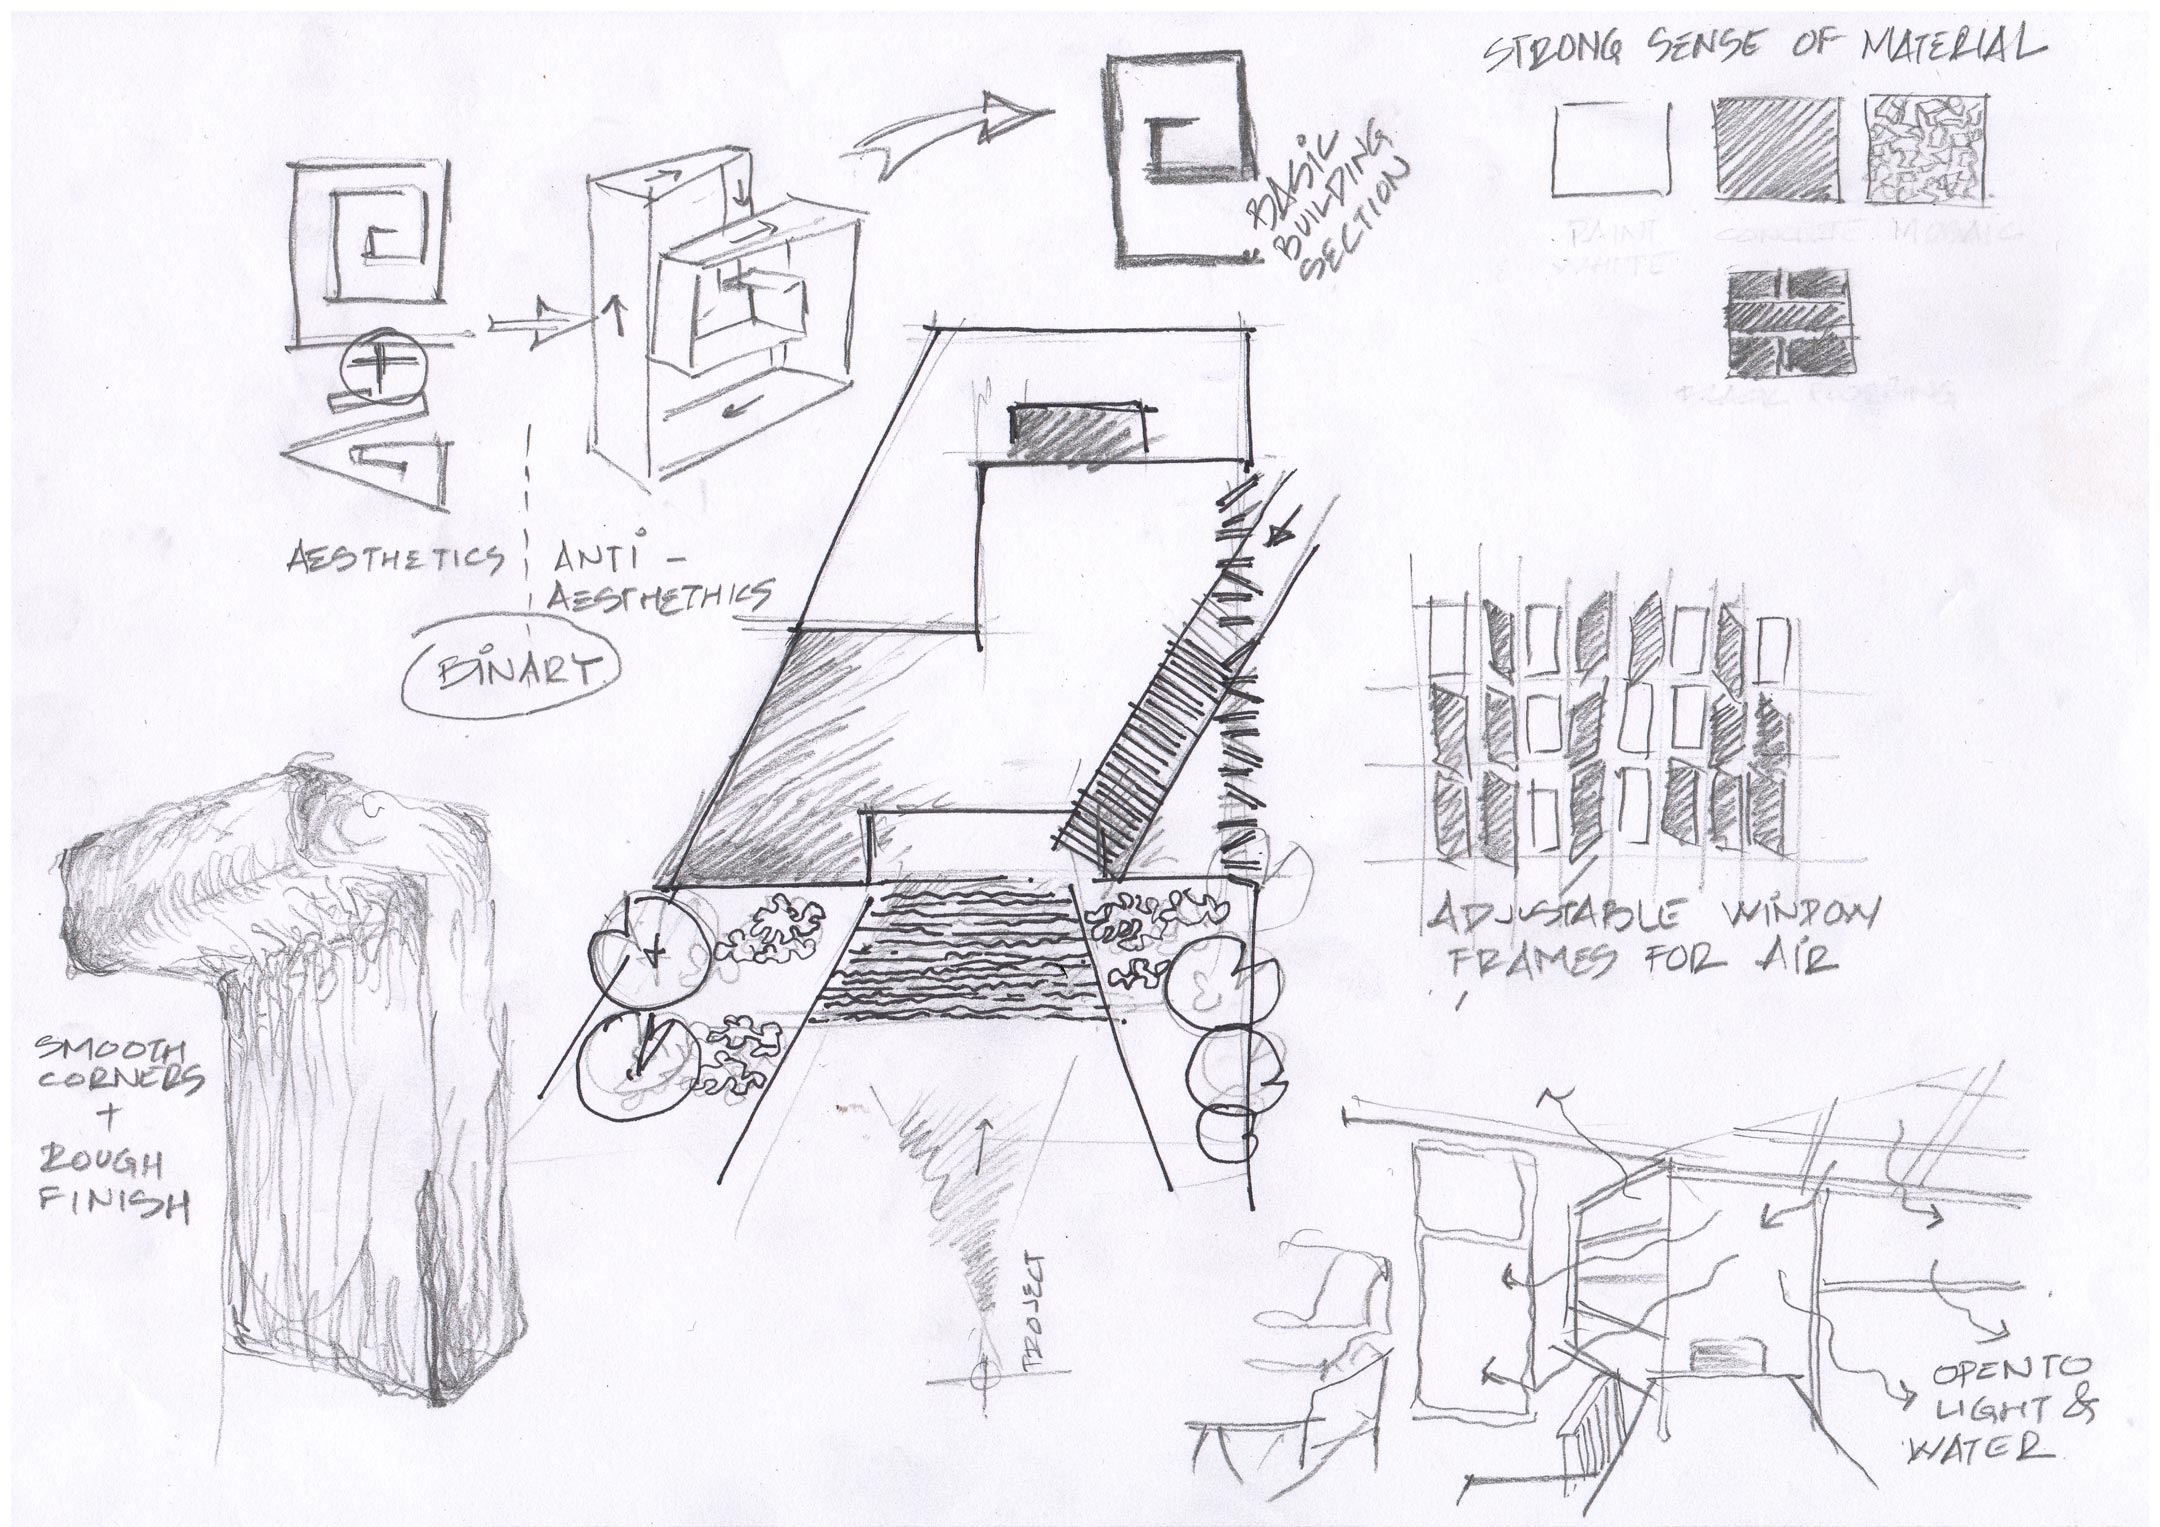 STRONG SENSE OF MATERIAL
PAINT
WHITE
CONCRETE
MOSAIC
BASIC
BUILDING
SECTION
AESTHETICS
ANTI-
AESTHETHICS
BINARY
ADJUSTABLE WINDOW
FRAMES FOR AIR
SMOOTH
CORNERS
+
ROUGH
FINISH
PROJECT
OPEN TO
LIGHT &
WATER